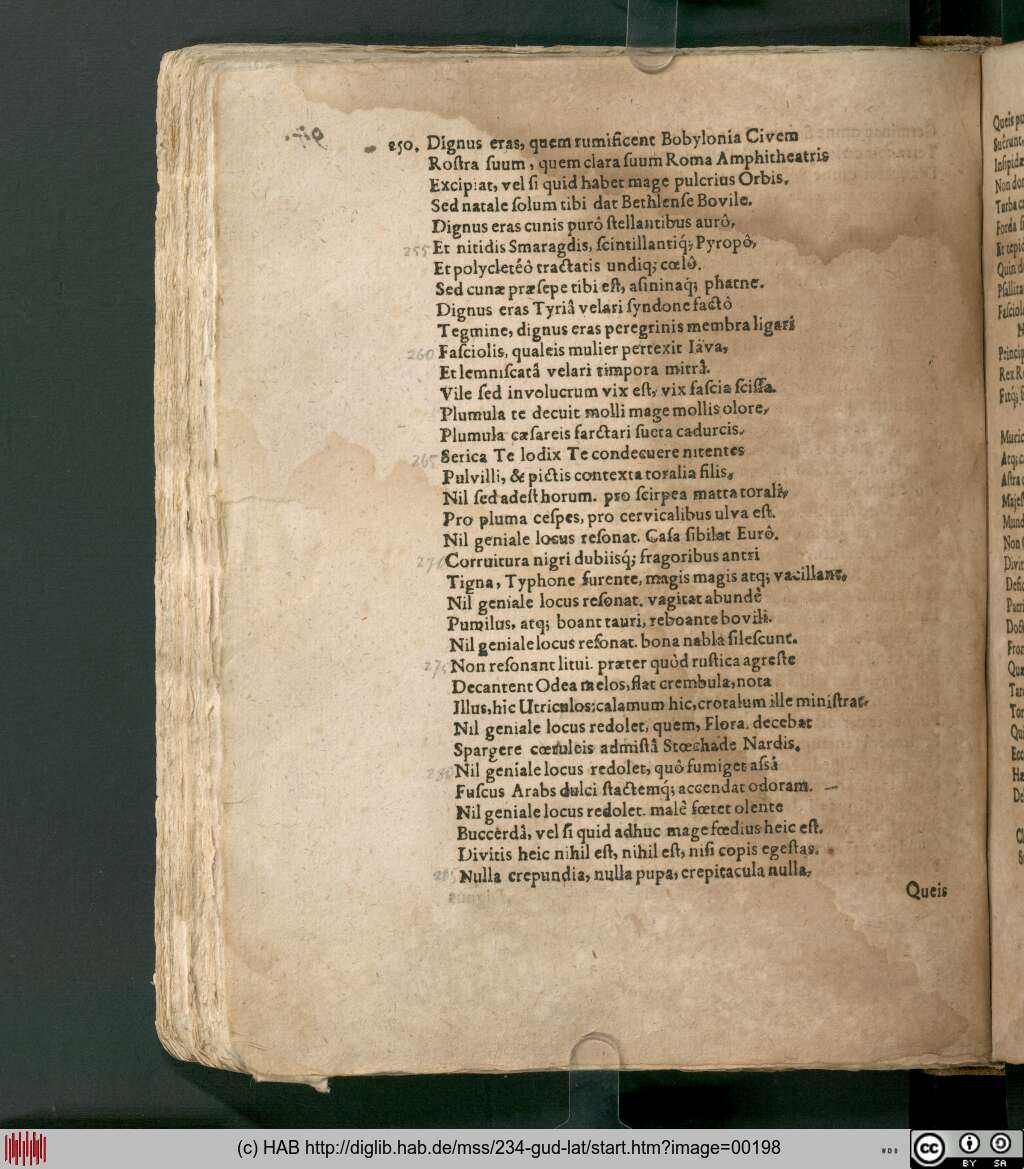 250. Dignus eras, quem rumificent Bobylonia Civem
Rostra suum, quem clara suum Roma Amphitheatris
Excipiat, vel si quid habet mage pulcrius Orbis.
Sed natale solum tibi dat Bethlense Bovile.
Dignus eras cunis purô stellantibus aurô,
255 Et nitidis Smaragdis, scintillantiq́; Pyropô,
Et polycletéô tractatis undiq; cœlô.
Sed cunæ præsepe tibi est, asininaq́; phatne.
Dignus eras Tyriâ velari syndone factô
Tegmine, dignus eras peregrinis membra ligari
260 Fasciolis, qualeis mulier pertexit Iäva,
Et lemniscatâ velari timpora mitrâ.
Vile sed involucrum vix est, vix fascia scissa.
Plumula te decuit molli mage mollis olore,
Plumula cæsareis farctari sueta cadurcis.
265 Serica Te lodix Te condecuere nitentes
Pulvilli, & pictis contexta toralia filis,
Nil sed adest horum. pro scirpea matta torali,
Pro pluma cespes, pro cervicalibus ulva est.
Nil geniale locus resonat. Casa sibilat Eurô.
270 Corruitura nigri dubiisq́; fragoribus antri
Tigna, Typhone furente, magis magis atq; vacillant.
Nil geniale locus resonat. vagitat abundê
Pumilus, atq; boant tauri, reboante bovili.
Nil geniale locus resonat. bona nabla silescunt.
275 Non resonant litui. præter quòd rustica agreste
Decantent Odea melos, flat crembula, nota
Illus, hic Utriculos; calamum hic, crotalum ille ministrat.
Nil geniale locus redolet, quem, Flora. decebat
Spargere cœruleis admistâ Stœchade Nardis.
280 Nil geniale locus redolet, quô fumiget assâ
Fuscus Arabs dulci stactemq́; accendat odoram.
Nil geniale locus redolet. malê fœtet olente
Buccerdâ, vel si quid adhuc mage fœdius heic est.
Divitis heic nihil est, nihil est, nisi copis egestas.
285 Nulla crepundia, nulla pupa, crepitacula nulla,
Queis
(c) HAB http://diglib.hab.de/mss/234-gud-lat/start.htm?image=00198
cc BY SA